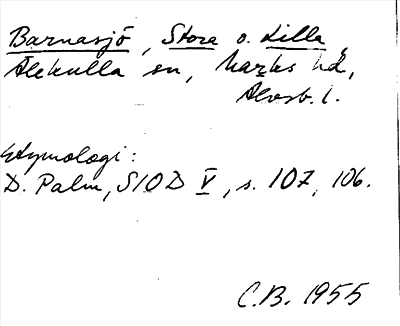 Barnasjö, Stora o. Lilla,
Älekulla sn, Marks hd,
Älvsb. l.
Etymologi:
D. Palm, SIOD V, s. 107, 106.
C.B. 1955